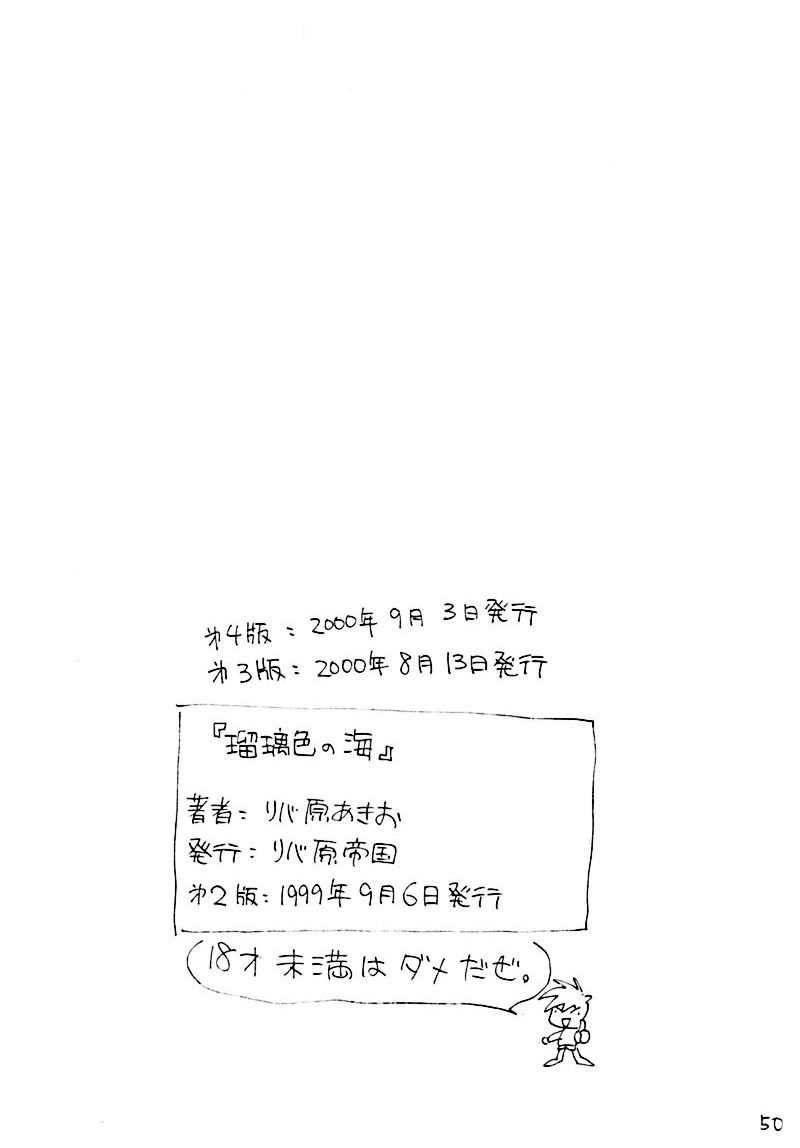 第4版：2000年9月3日発行
第3版：2000年8月13日発行
『瑠璃色の海』
著者：リバ原あきお
発行：リバ原帝国
第2版：1999年9月6日発行
18才未満はダメだぜ。
50